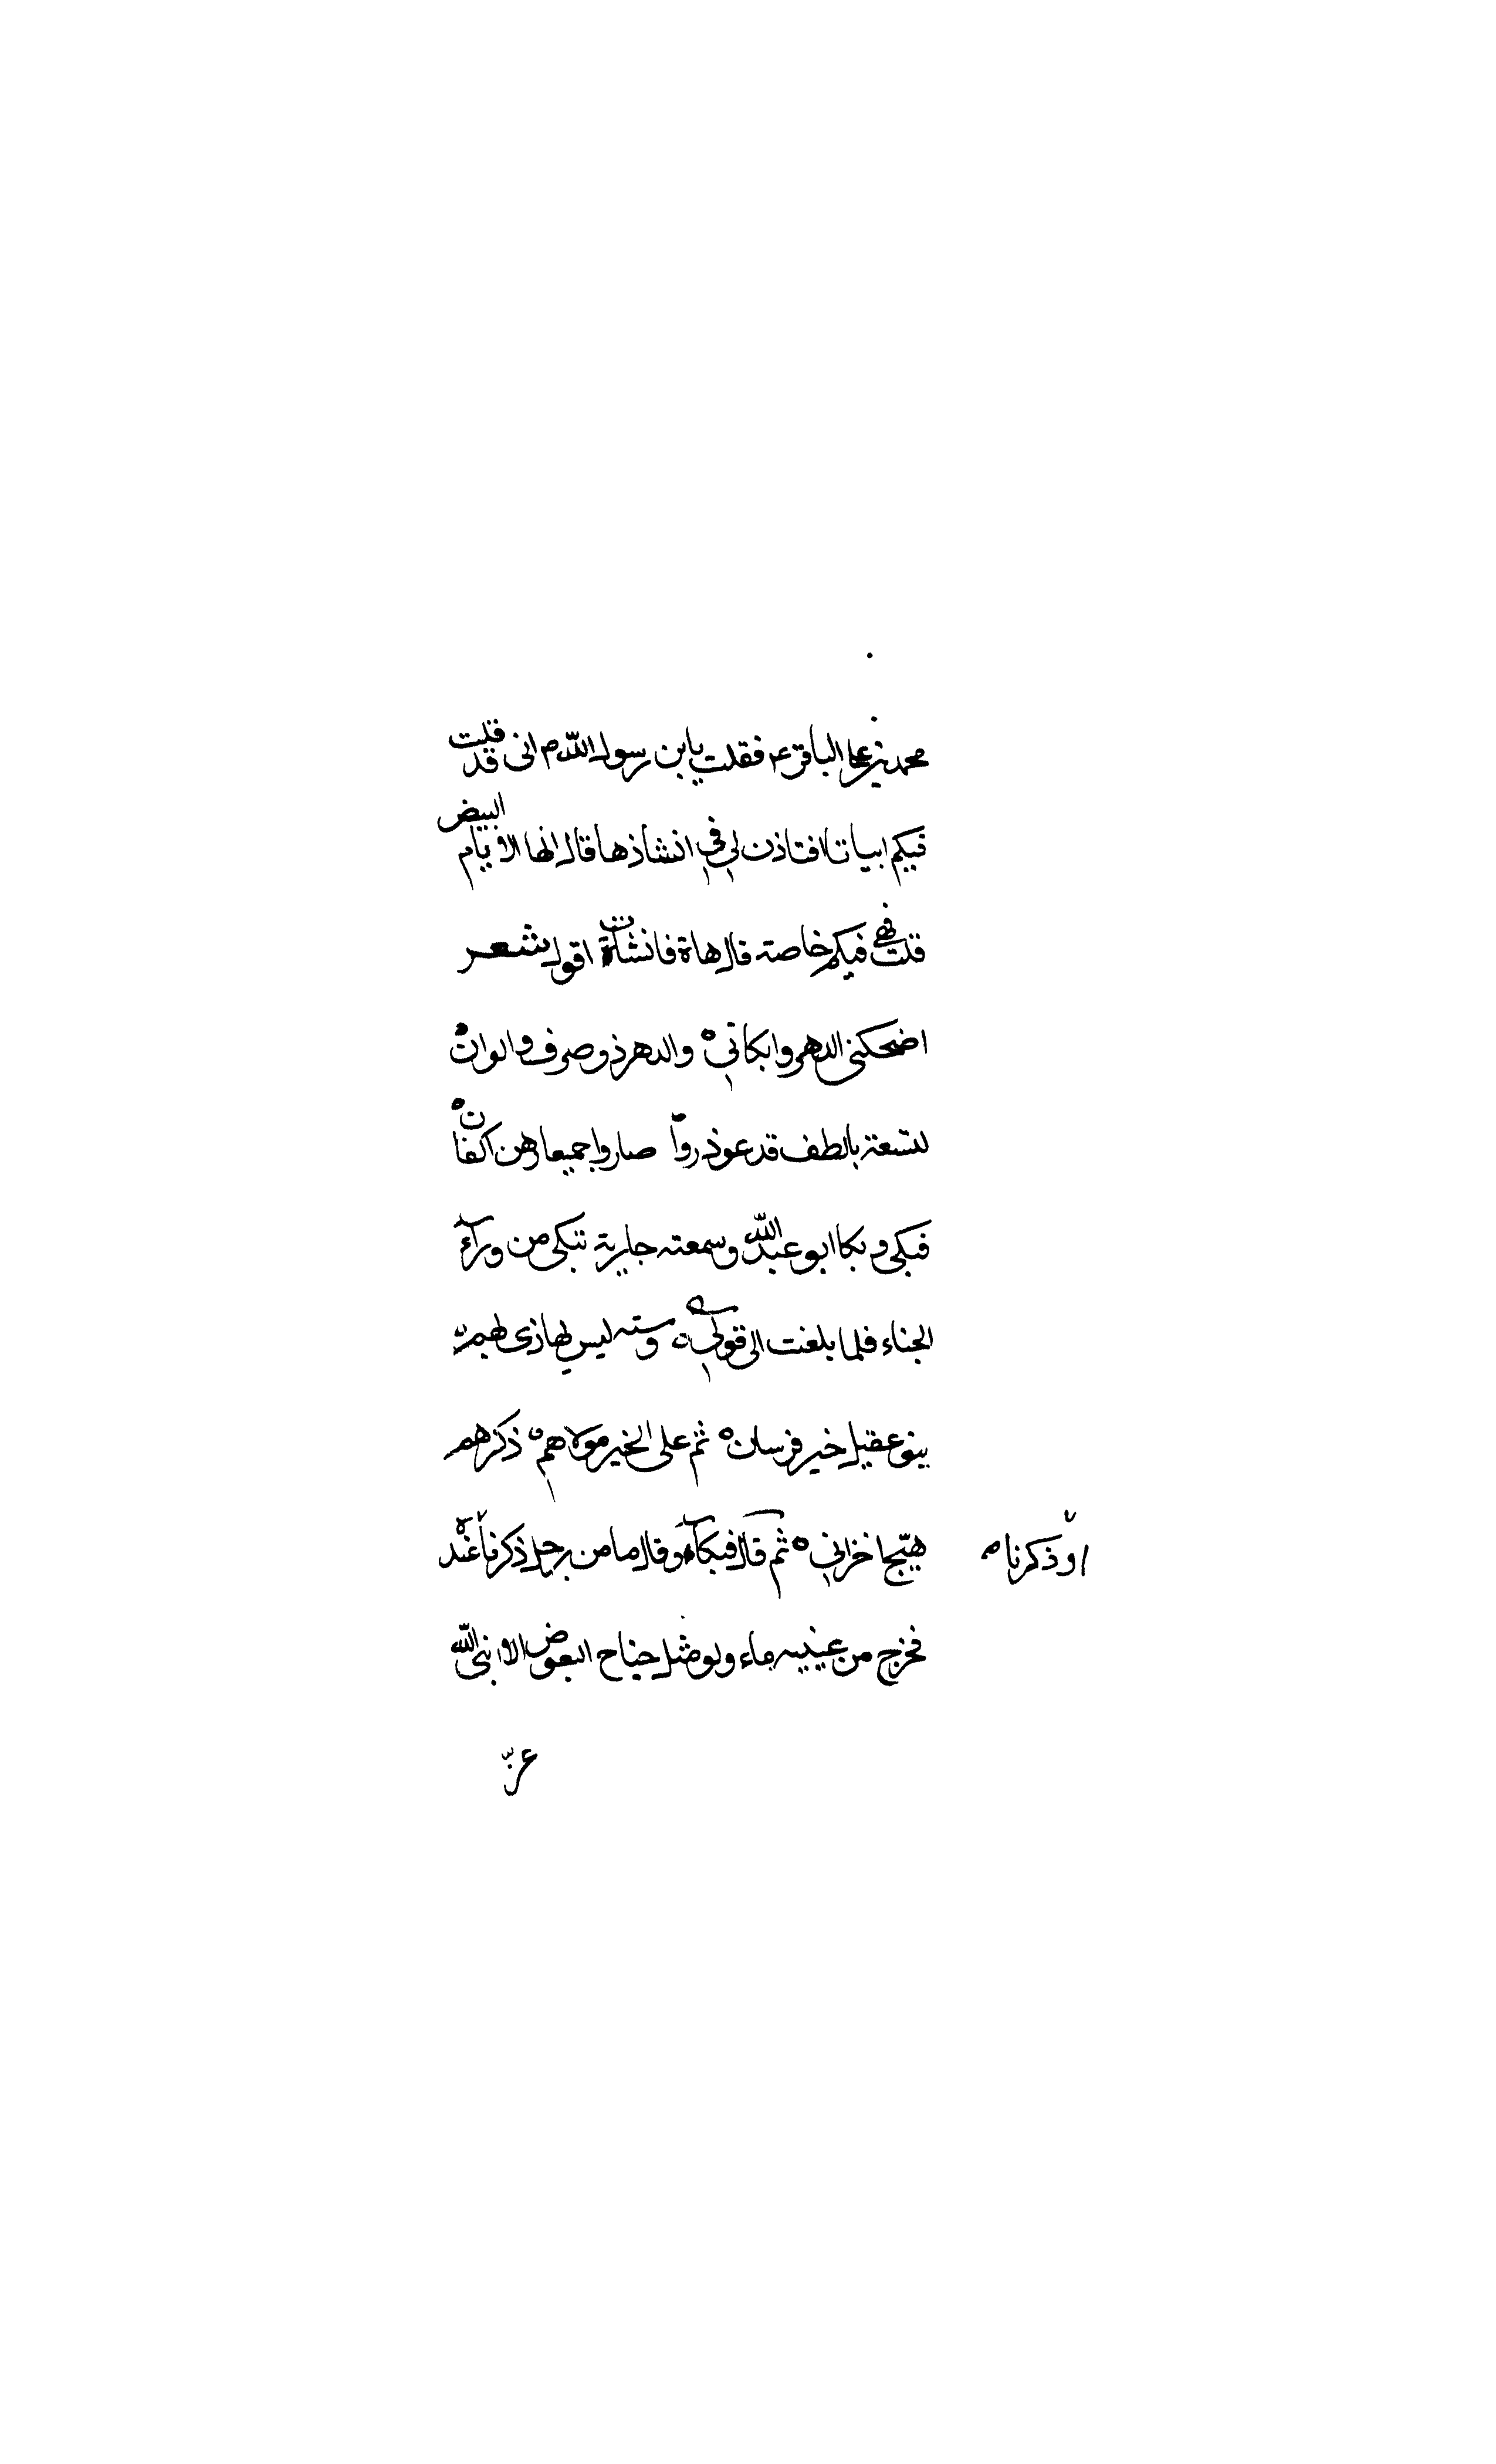 محمد بن على الباقر ع م فقلت يابن رسول الله ص انى قد قلت
فيكم ابياتا افتاذن لي في انشاذها قال انها الايام البيض
قلت فهي فيكم خاصة قال هاة فانشات اقول شعر
اضحكني الدهر وابكاني ه والدهر ذو صرف والوان ه
لتسعة بالطف قد عوذروا صاروا جميعا رهن اكفان ه
فبكى و بكا ابو عبد الله وسمعته جارية تبكى من ورآء
الجناء فلما بلغت الى قولي ه وسته ليس لهازى لهم
بنو عقيل خير فرسان ه ثم على الخير مولاهم ه ذكرهم
هيّج اخزاني ه ثم قال فبكآء وقال ما من رجل ذكرنا عند
او ذكرنا ه
فخرج من عينيه ماء ولو مثل جناح البعوض الا بنى الله
عزّ